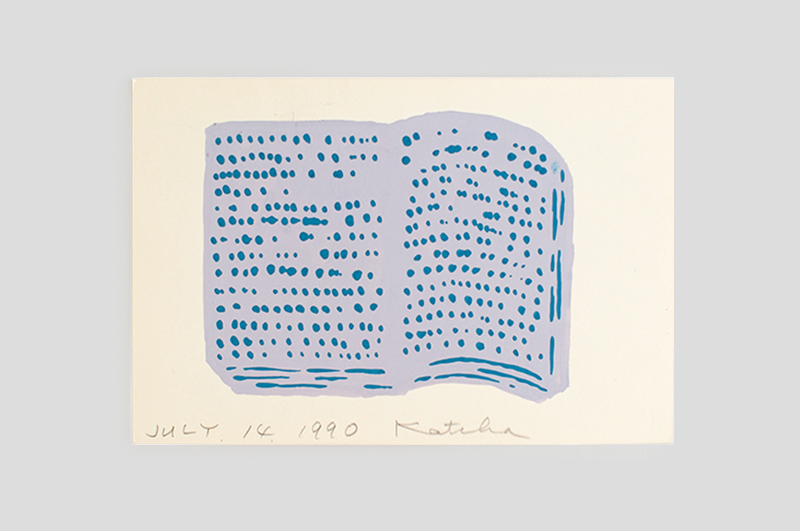 JULY. 14. 1990 Katcha